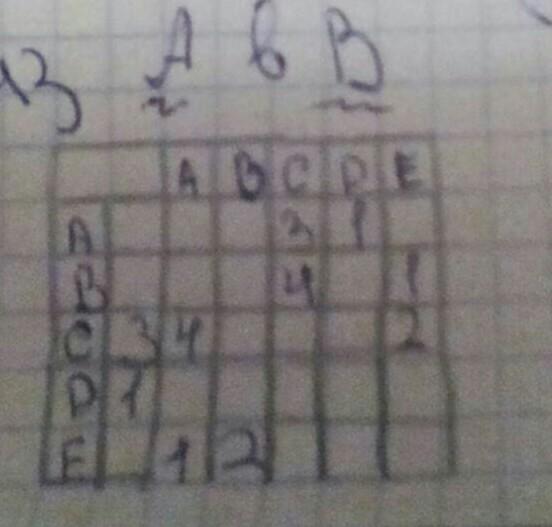 из A в B
A B C D E
A 3 1
B 4 1
C 3 4 2
D 1
E 1 2